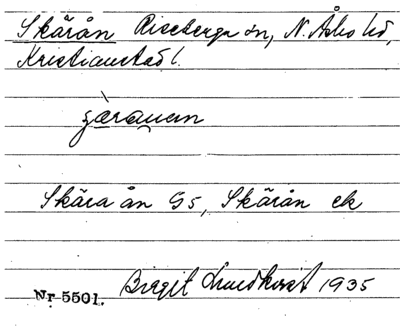 Skärån Riseberga sn, N. Åsbo hd,
Kristianstad l.
Skära ån G5, Skärån ek
Nr 5501. Birgit Lundkvist 1935